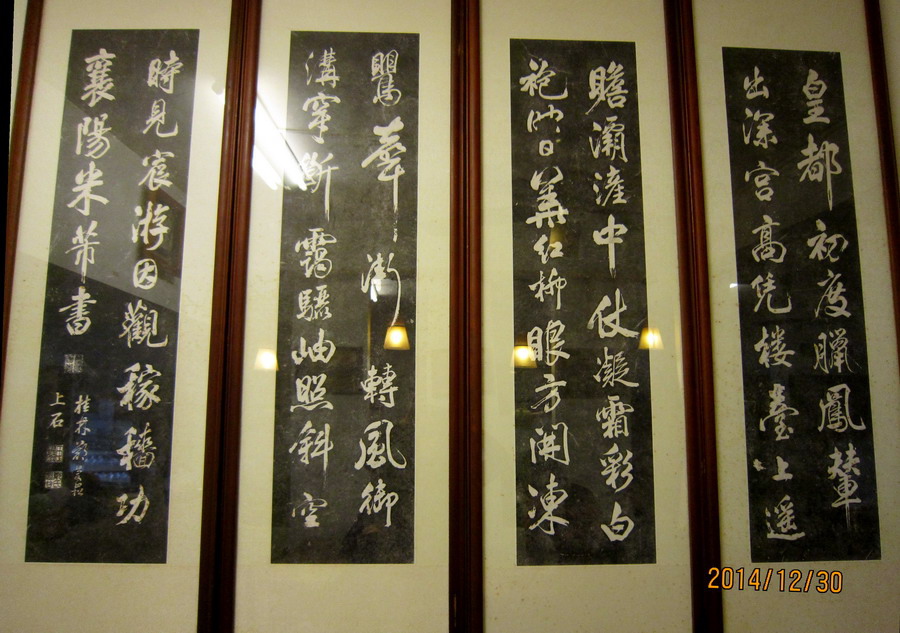 皇都初度臘鳳輦
出深宮高凭楼臺上遥
瞻灞滻中仗凝霜彩白
袍映日華紅柳眼方開凍
鸎聲漸轉風御
溝穿斷靄驪岫照斜空
時見宸游因觀稼穡功
襄陽米芾書
桂林
上石
2014/12/30